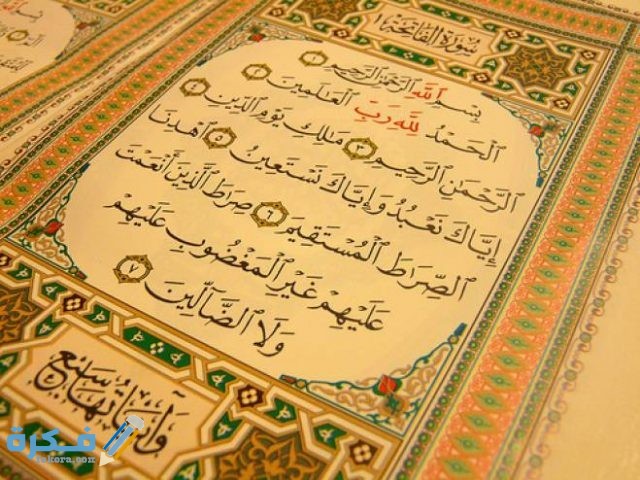 سُورَةُ الفَاتِحَةِ ١
بِسْمِ ٱللَّهِ ٱلرَّحْمَٰنِ ٱلرَّحِيمِ ١
ٱلْحَمْدُ لِلَّهِ رَبِّ ٱلْعَٰلَمِينَ ٢
ٱلرَّحْمَٰنِ ٱلرَّحِيمِ ٣ مَٰلِكِ يَوْمِ ٱلدِّينِ ٤
إِيَّاكَ نَعْبُدُ وَإِيَّاكَ نَسْتَعِينُ ٥ ٱهْدِنَا
ٱلصِّرَٰطَ ٱلْمُسْتَقِيمَ ٦ صِرَٰطَ ٱلَّذِينَ أَنْعَمْتَ
عَلَيْهِمْ غَيْرِ ٱلْمَغْضُوبِ عَلَيْهِمْ
وَلَا ٱلضَّآلِّينَ ٧
وَآيَاتُهَا سَبْعٌ
فكرة